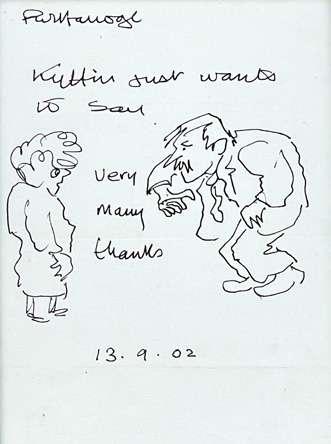 Pwllfanogl
Kyffin just wants
to say
very
many
thanks
13.9.02